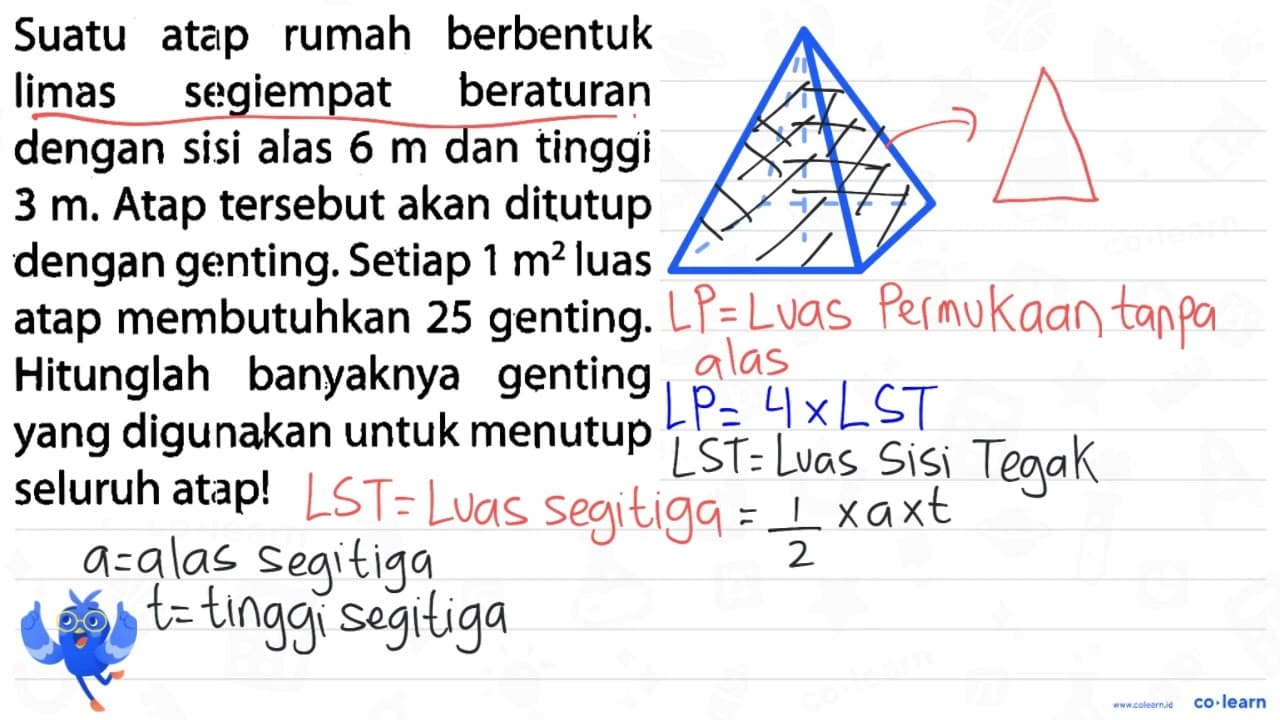 Suatu atap rumah berbentuk
limas segiempat beraturan
dengan sisi alas 6 m dan tinggi
3 m. Atap tersebut akan ditutup
dengan genting. Setiap 1 m² luas
atap membutuhkan 25 genting.
Hitunglah banyaknya genting
yang digunakan untuk menutup
seluruh atap!
LP = Luas Permukaan tanpa
alas
LP = 4 x LST
LST = Luas Sisi Tegak
LST = Luas segitiga = 1/2 x a x t
a = alas segitiga
t = tinggi segitiga
co·learn
co·learn
www.colearn.id co·learn